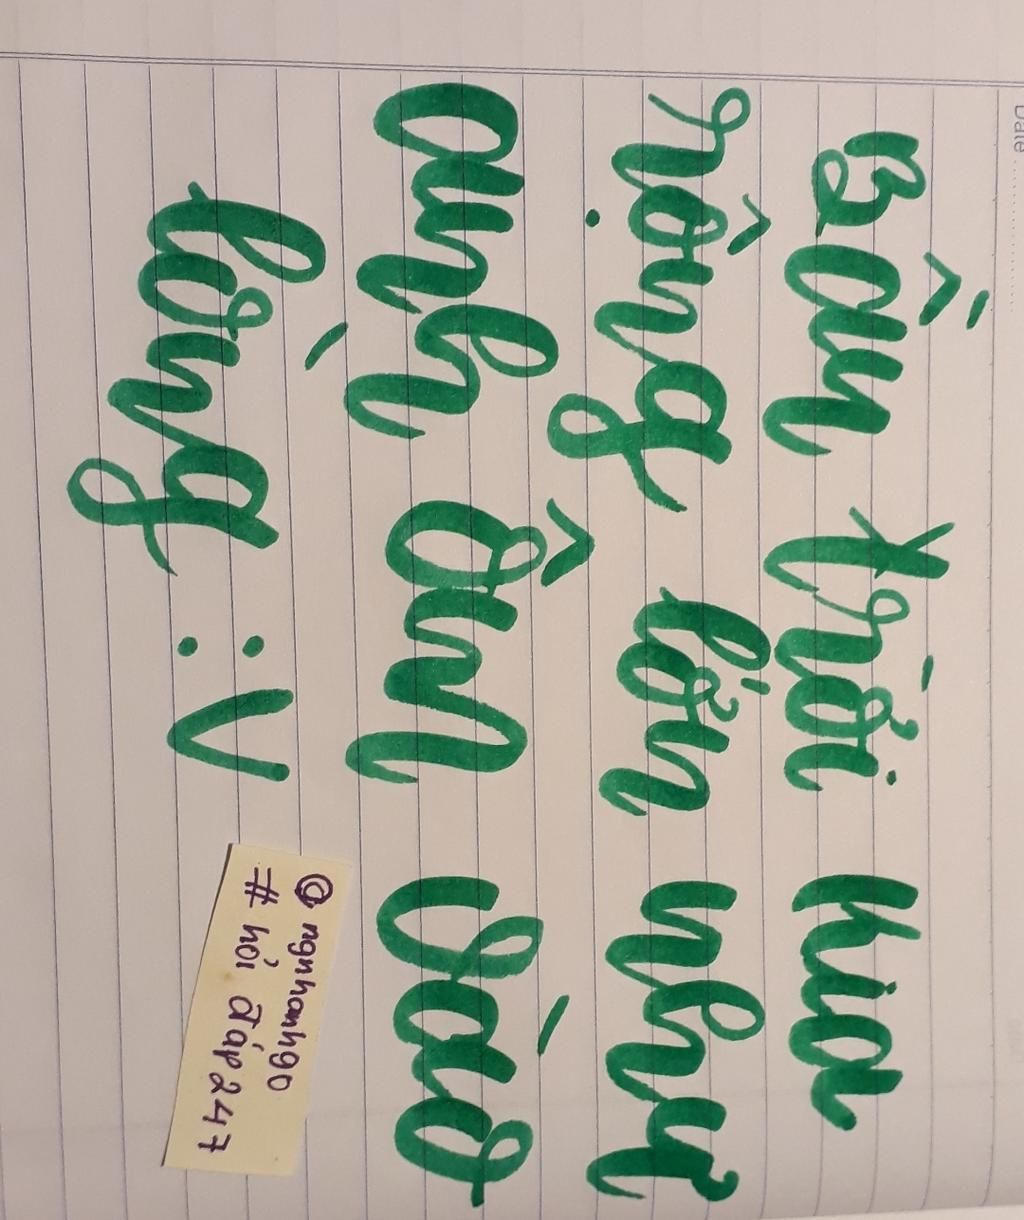 Date
Bầu trời kia
rộng lớn như
anh ôm vào
lòng :V
@ ngnhanhgo
# hỏi đáp 247